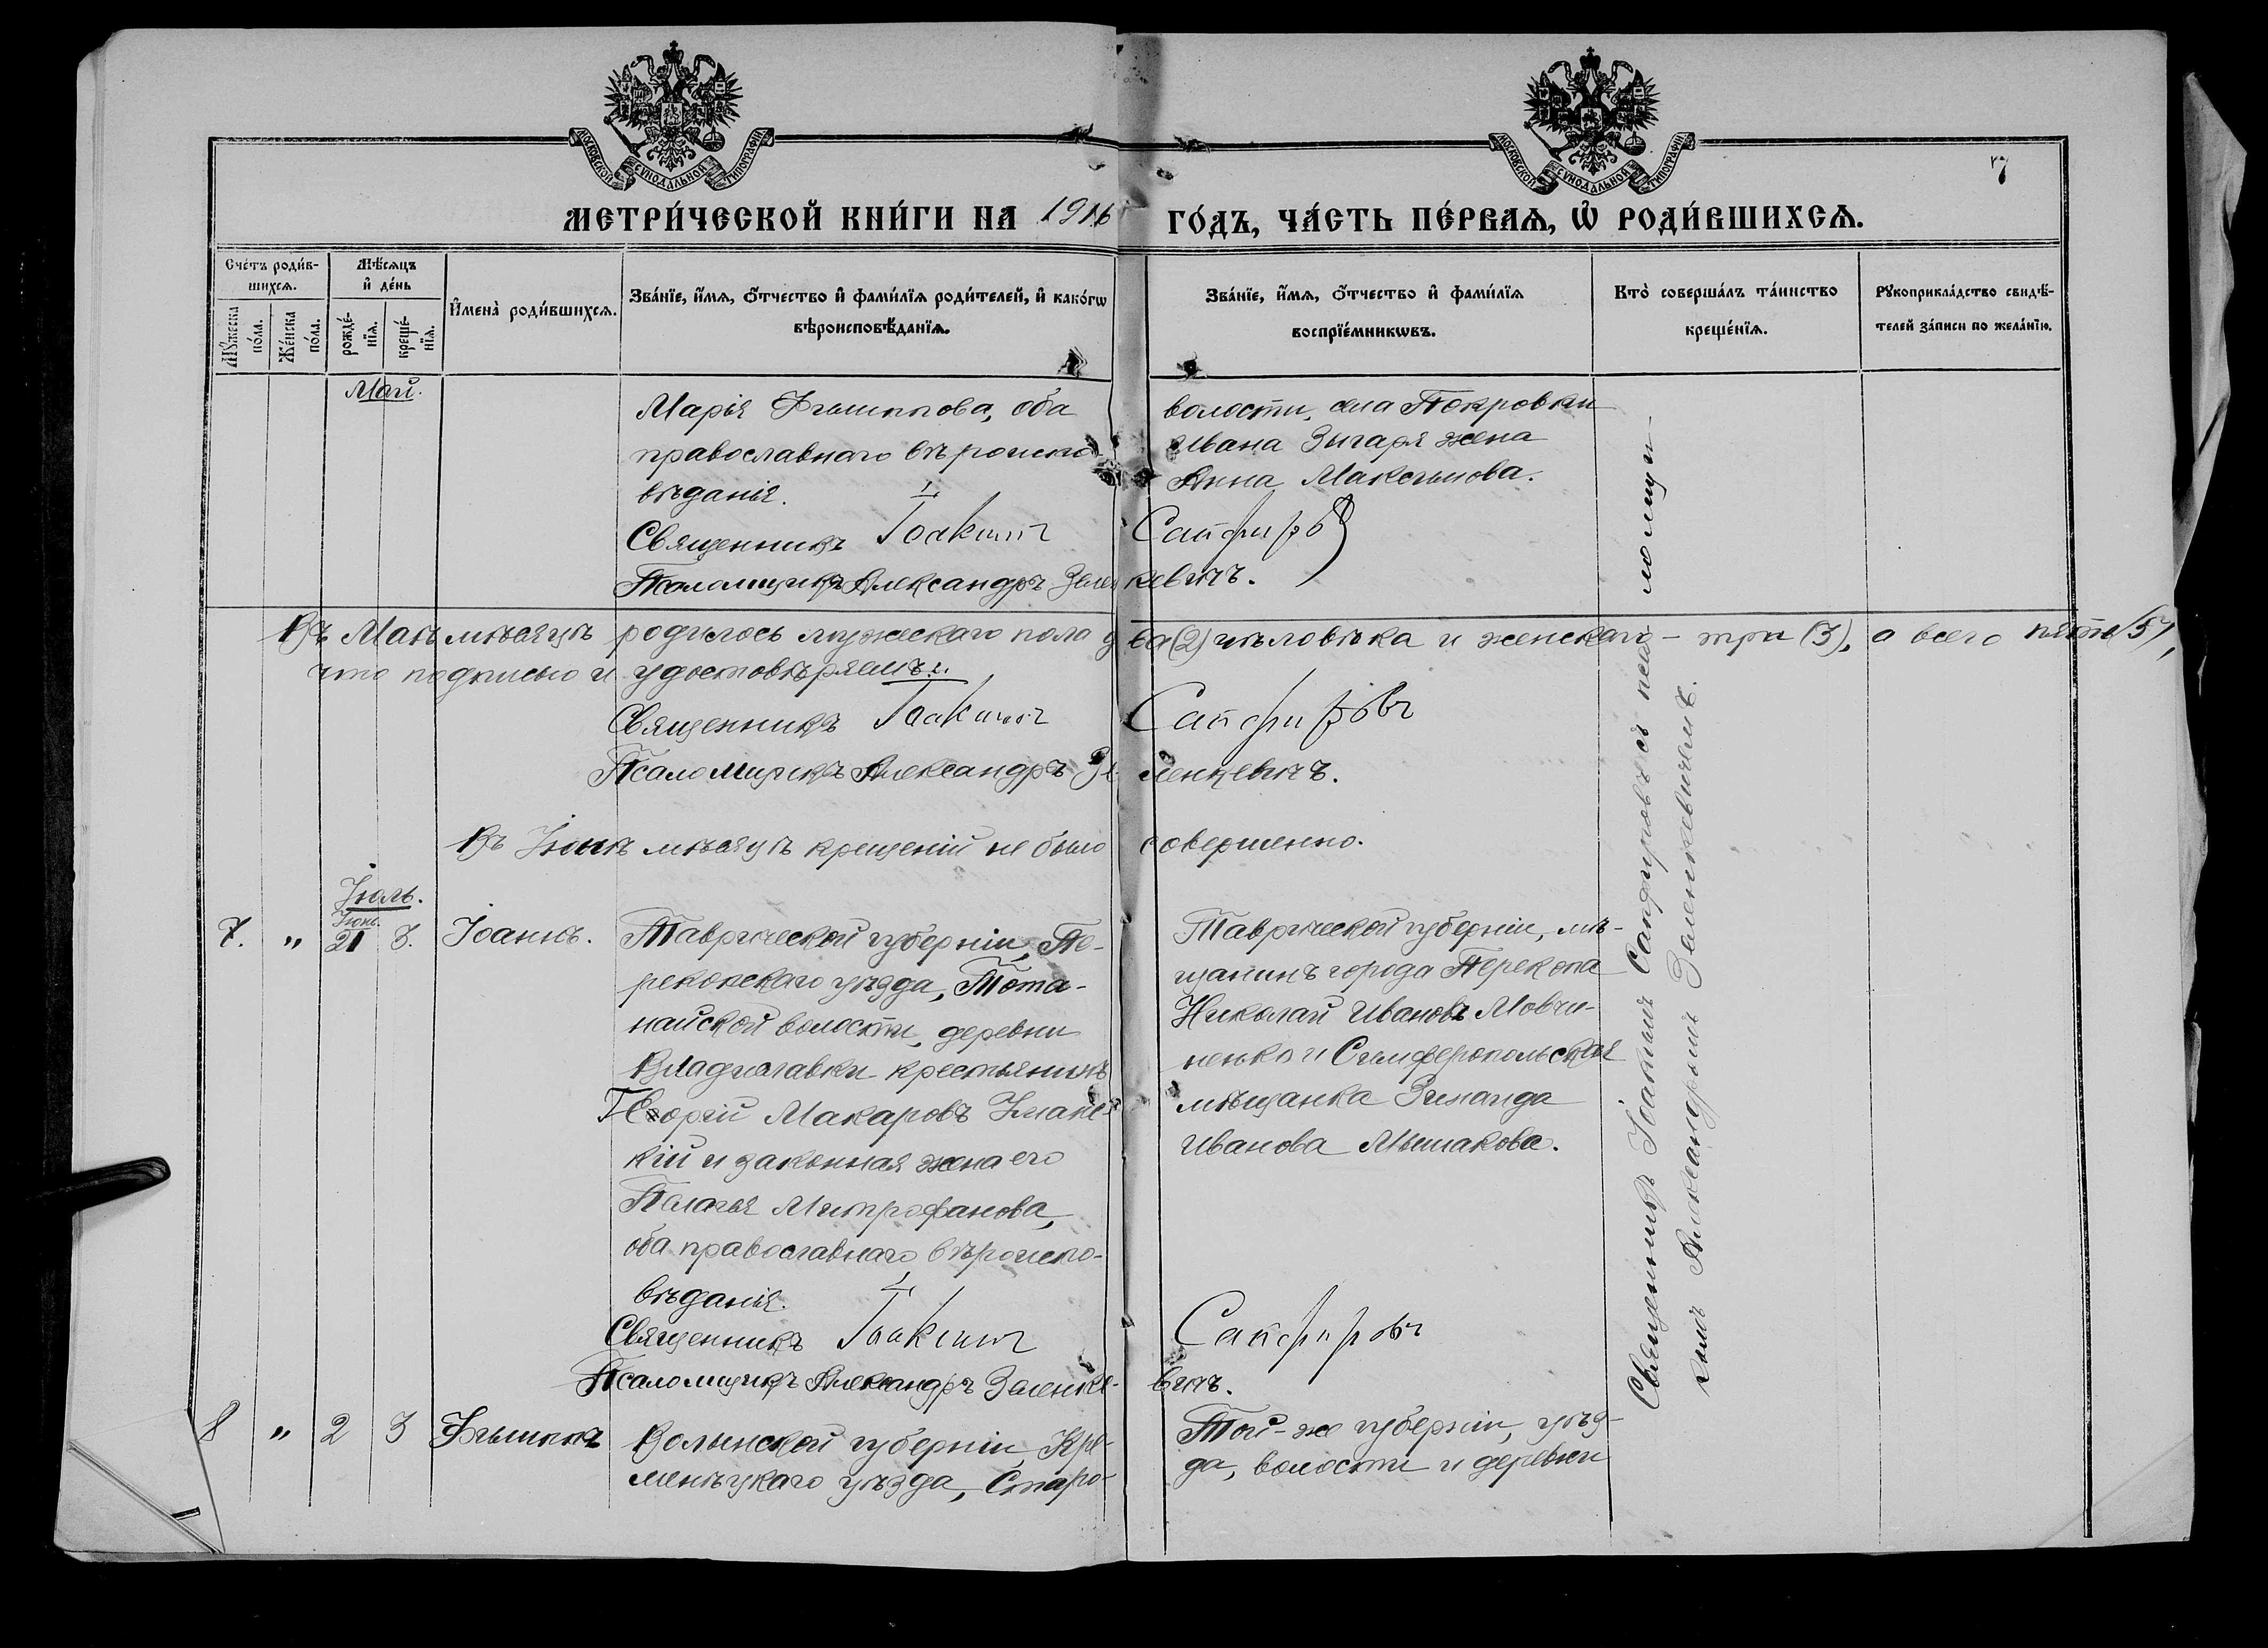 МОСКОВСКОЙ СѴНОДАЛЬНОЙ ТИПОГРАФІИ
МОСКОВСКОЙ СѴНОДАЛЬНОЙ ТИПОГРАФІИ
7
МЕТРИ́ЧЕСКОЙ КНИ́ГИ НА 1916 ГО́ДЪ, ЧА́СТЬ ПЕ́РВАѦ, Ѽ РОДИ́ВШИХСѦ.
Сче́тъ роди́в-
шихсѧ.
Мꙋ́жеска по́ла.
Же́нска по́ла.
Мѣ́сѧцъ
и҆ де́нь
рожде́-
нїѧ.
креще́-
нїѧ.
И҆мена̀ роди́вшихсѧ.
Зва́нїе, и҆́мѧ, ѻ҆́тчество и҆ фами́лїѧ роди́телей, и҆ како́гѡ
вѣроисповѣ́данїѧ.
Зва́нїе, и҆́мѧ, ѻ҆́тчество и҆ фами́лїѧ
воспрїе́мникѡвъ.
Кто̀ соверша́лъ та́инство
креще́нїѧ.
Рꙋкоприкла́дство свидѣ́-
телей за́писи по жела́нїю.
Май.
Марія Филиппова, оба
православнаго вѣроиспо-
вѣданія.
Священникъ Іоакимъ Сапфировъ
Псаломщикъ Александръ Зеленкевичъ.
волости, села Покровки
Ивана Зыгаря жена
Анна Максимова.
Въ Маѣ мѣсяцѣ родилось мужескаго пола два (2) человѣка и женскаго – три (3), а всего пять (5),
что подписью и удостовѣряемъ.
Священникъ Іоакимъ Сапфировъ
Псаломщикъ Александръ Зеленкевичъ.
Въ Іюнѣ мѣсяцѣ крещеній не было совершенно.
Іюль.
7. " Іюнь. 21 3. Іоаннъ.
Таврической губерніи, Пе-
рекопскаго уѣзда, Тота-
найской волости, деревни
Владиславки крестьянинъ
Георгій Макаровъ
кій и законная жена его
Палагея Митрофанова,
оба православнаго вѣроиспо-
вѣданія.
Священникъ Іоакимъ Сапфировъ
Псаломщикъ Александръ Зеленкевичъ.
Таврической губерніи, мѣ-
щанинъ города Перекопа
Николай Ивановъ Мовчи-
ненко и Симферопольская
мѣщанка Зинаида
Иванова Мышакова.
8 " 2 3 Филиппъ
Волынской губерніи, Кре-
менецкаго уѣзда, Старо-
Той-же губерніи, уѣз-
да, волости и деревни
Священникъ Іоакимъ Сапфировъ съ псаломщи-
комъ Александромъ Зеленкевичемъ.